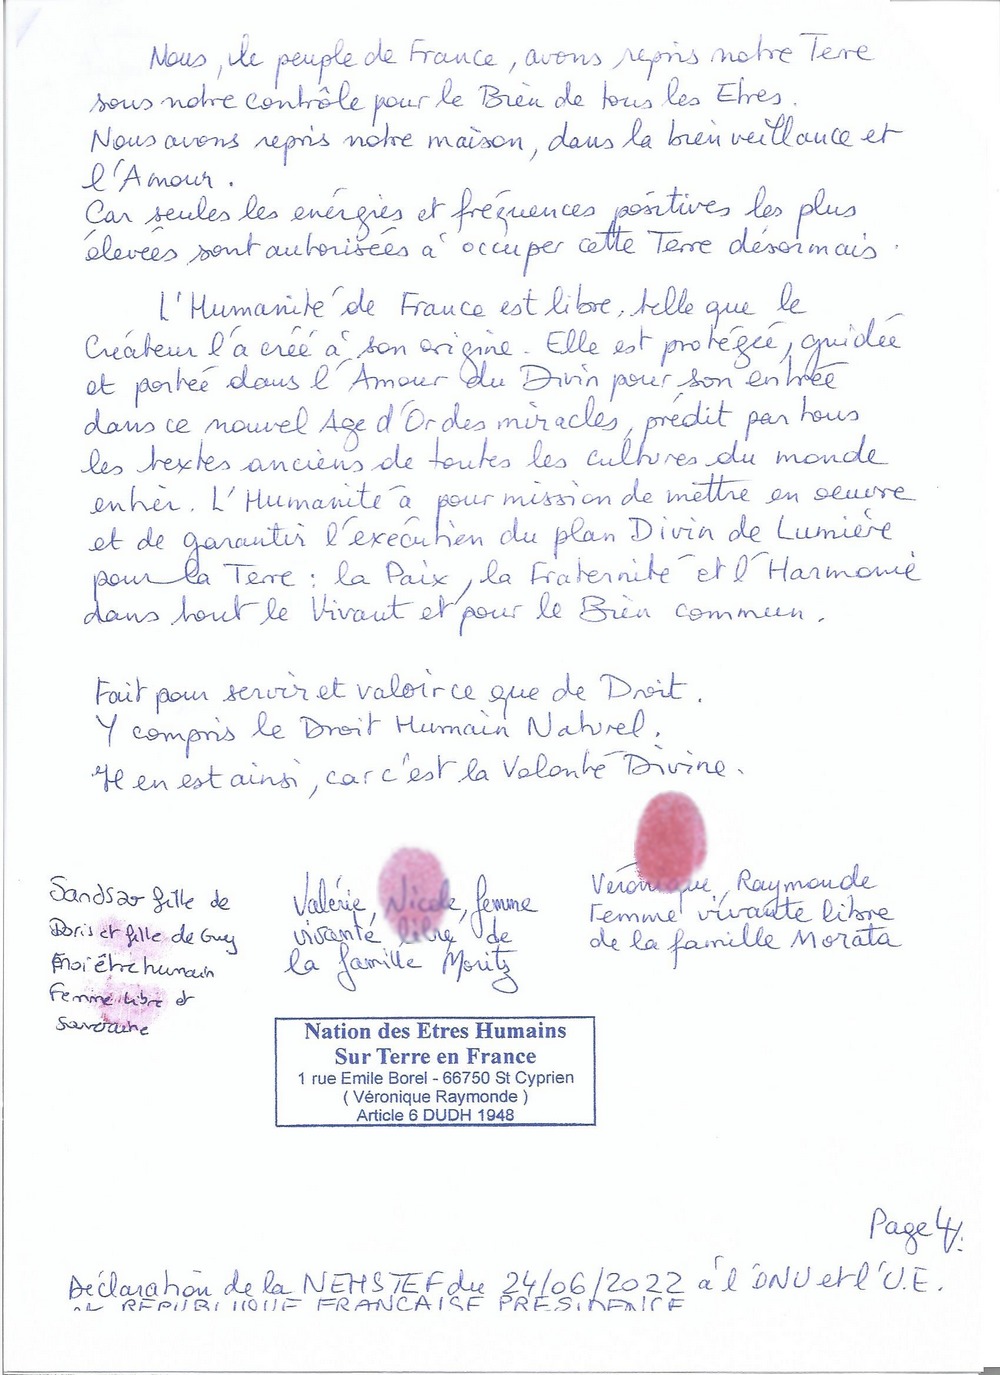 Nous, le peuple de France, avons repris notre Terre
sous notre contrôle pour le Bien de tous les Etres.
Nous avons repris notre maison, dans la bienveillance et
l'Amour.
Car seules les énérgies et fréquences positives les plus
élevées sont autorisées à occuper cette Terre désormais.
L'Humanité de France est libre, telle que le
Créateur l'a créé à son origine. Elle est protégée, guidée
et portée dans l'Amour du Divin pour son entrée
dans ce nouvel Age d'Or des miracles, prédit par tous
les textes anciens de toutes les cultures du monde
entier. L'Humanité a pour mission de mettre en oeuvre
et de garantir l'exécution du plan Divin de Lumière
pour la Terre : la Paix, la Fraternité et l'Harmonie
dans tout le Vivant et pour le Bien commun.
Fait pour servir et valoir ce que de Droit.
Y compris le Droit Humain Naturel.
Il en est ainsi, car c'est la Volonté Divine.
Sandsar fille de
Doris et fille de Guy
Moi être humain
Femme libre et
Souveraine
Valérie, Nicole, femme
vivante libre de
la famille Moritz
Véronique, Raymonde
Femme vivante libre
de la famille Morata
Nation des Etres Humains
Sur Terre en France
1 rue Emile Borel - 66750 St Cyprien
( Véronique Raymonde )
Article 6 DUDH 1948
Page 4/.
Déclaration de la NEHSTEF du 24/06/2022 à l'ONU et l'U.E.
REPUBLIQUE FRANCAISE PRESIDENCE